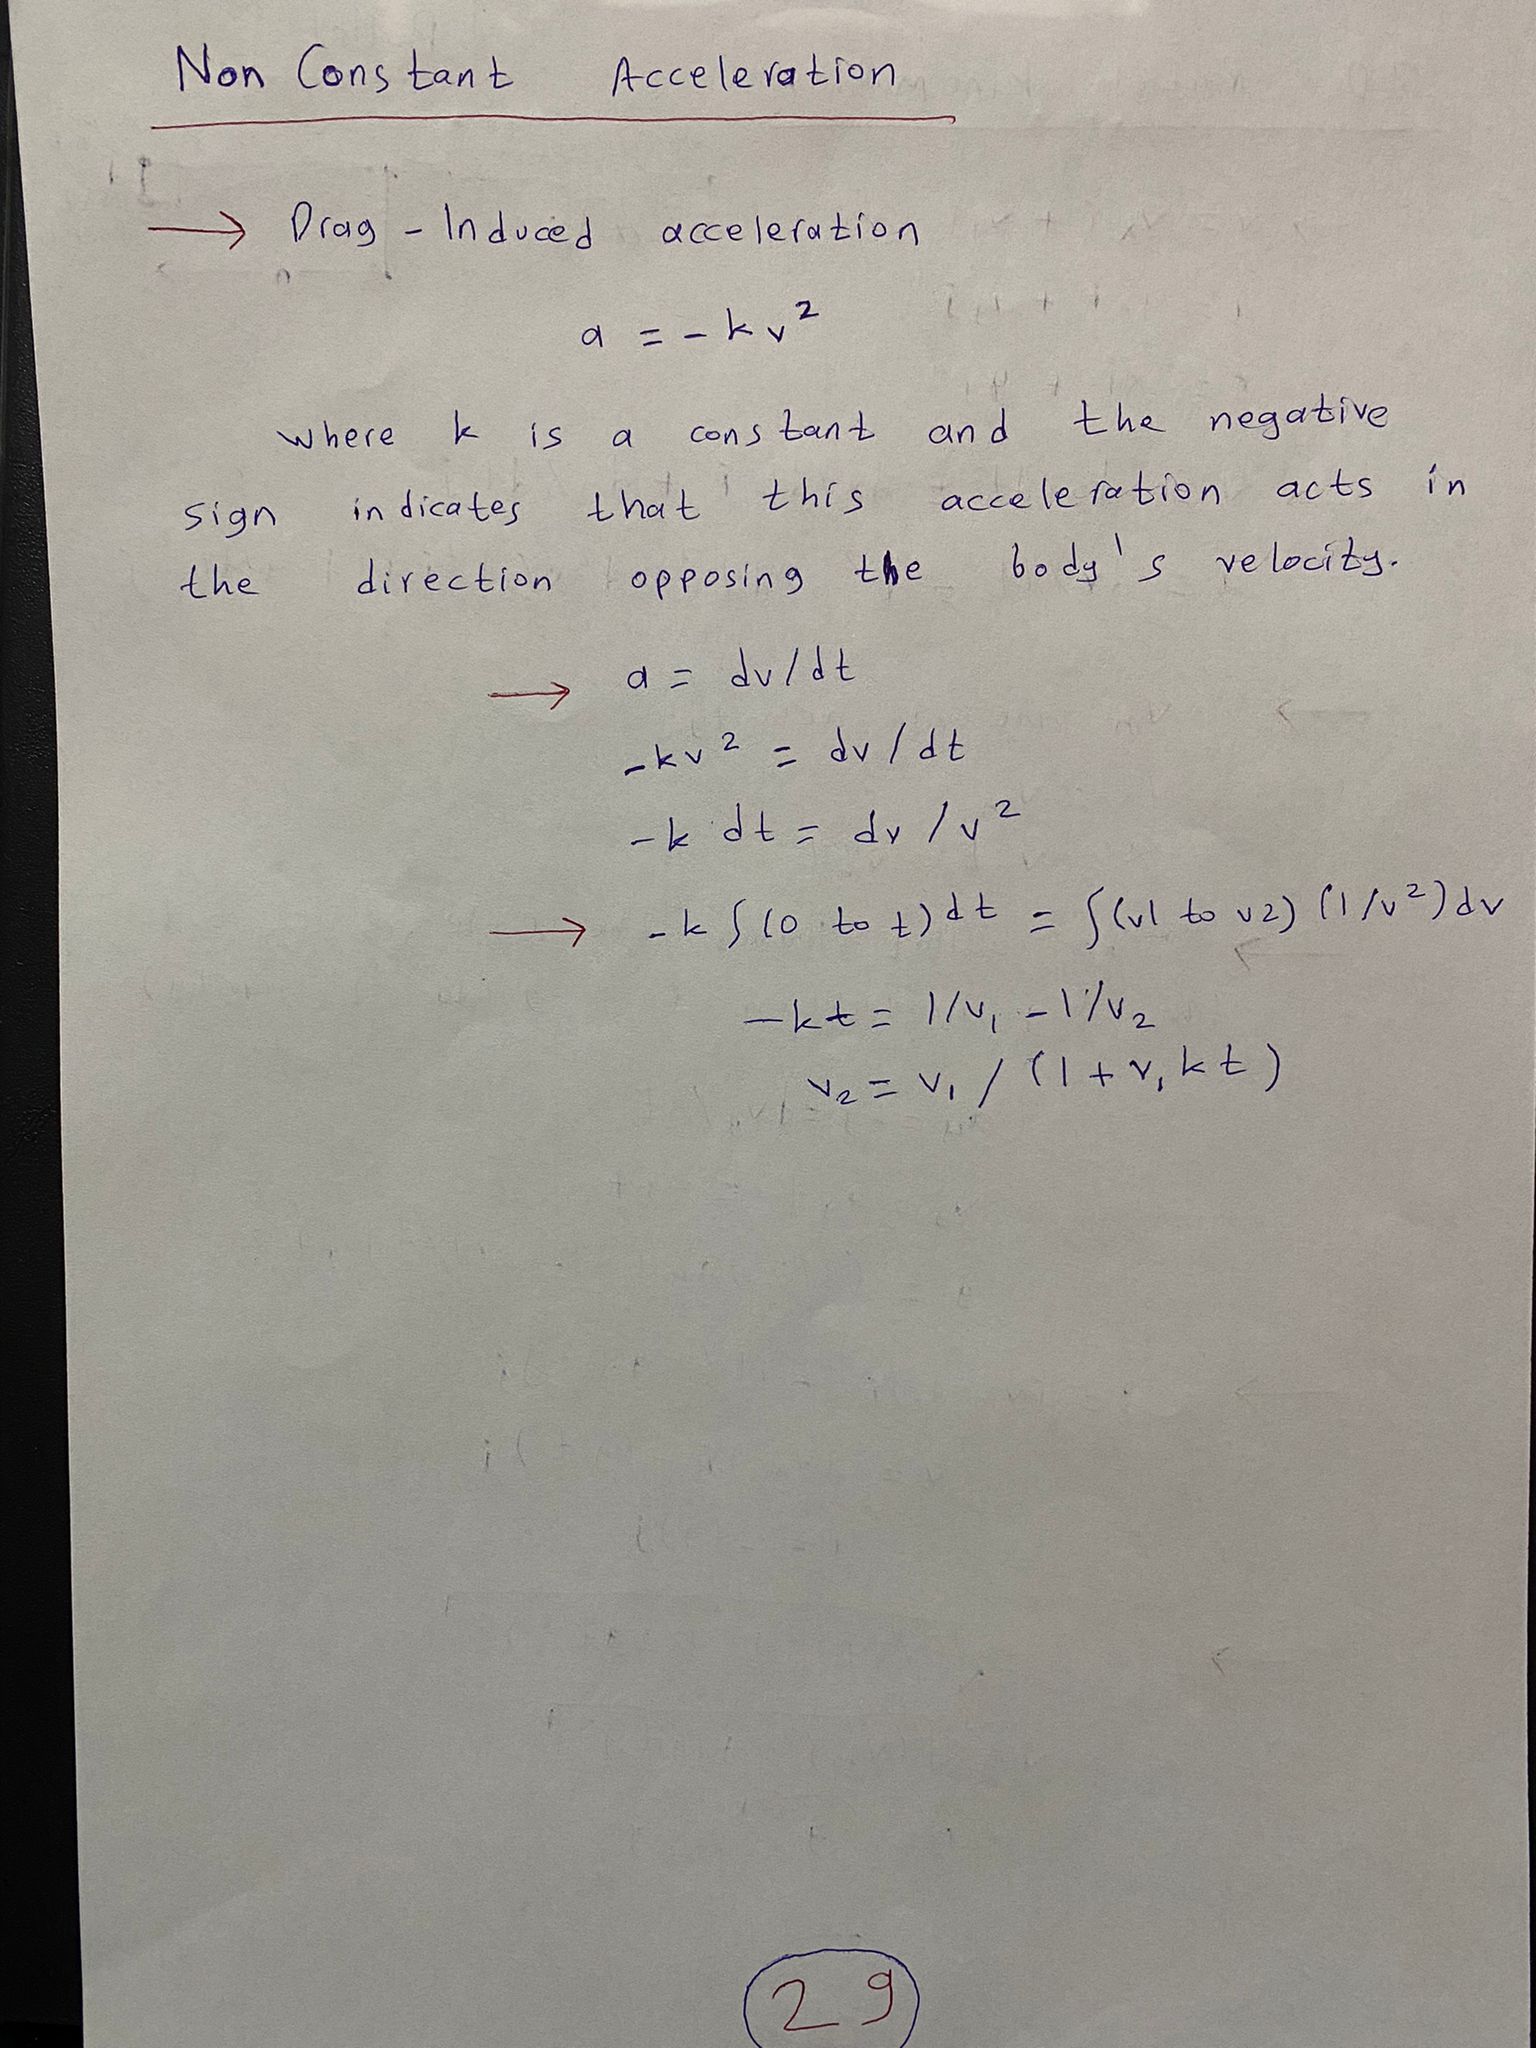 Non Constant Acceleration
→ Drag - Induced acceleration
a = - k v²
where k is a constant and the negative
sign indicates that this acceleration acts in
the direction opposing the body's velocity.
→ a = dv/dt
-kv² = dv/dt
-k dt = dv/v²
→ -k ∫(0 to t) dt = ∫(v1 to v2) (1/v²)dv
-kt = 1/v₁ - 1/v₂
v₂ = v₁ / (1 + v₁ k t)
29